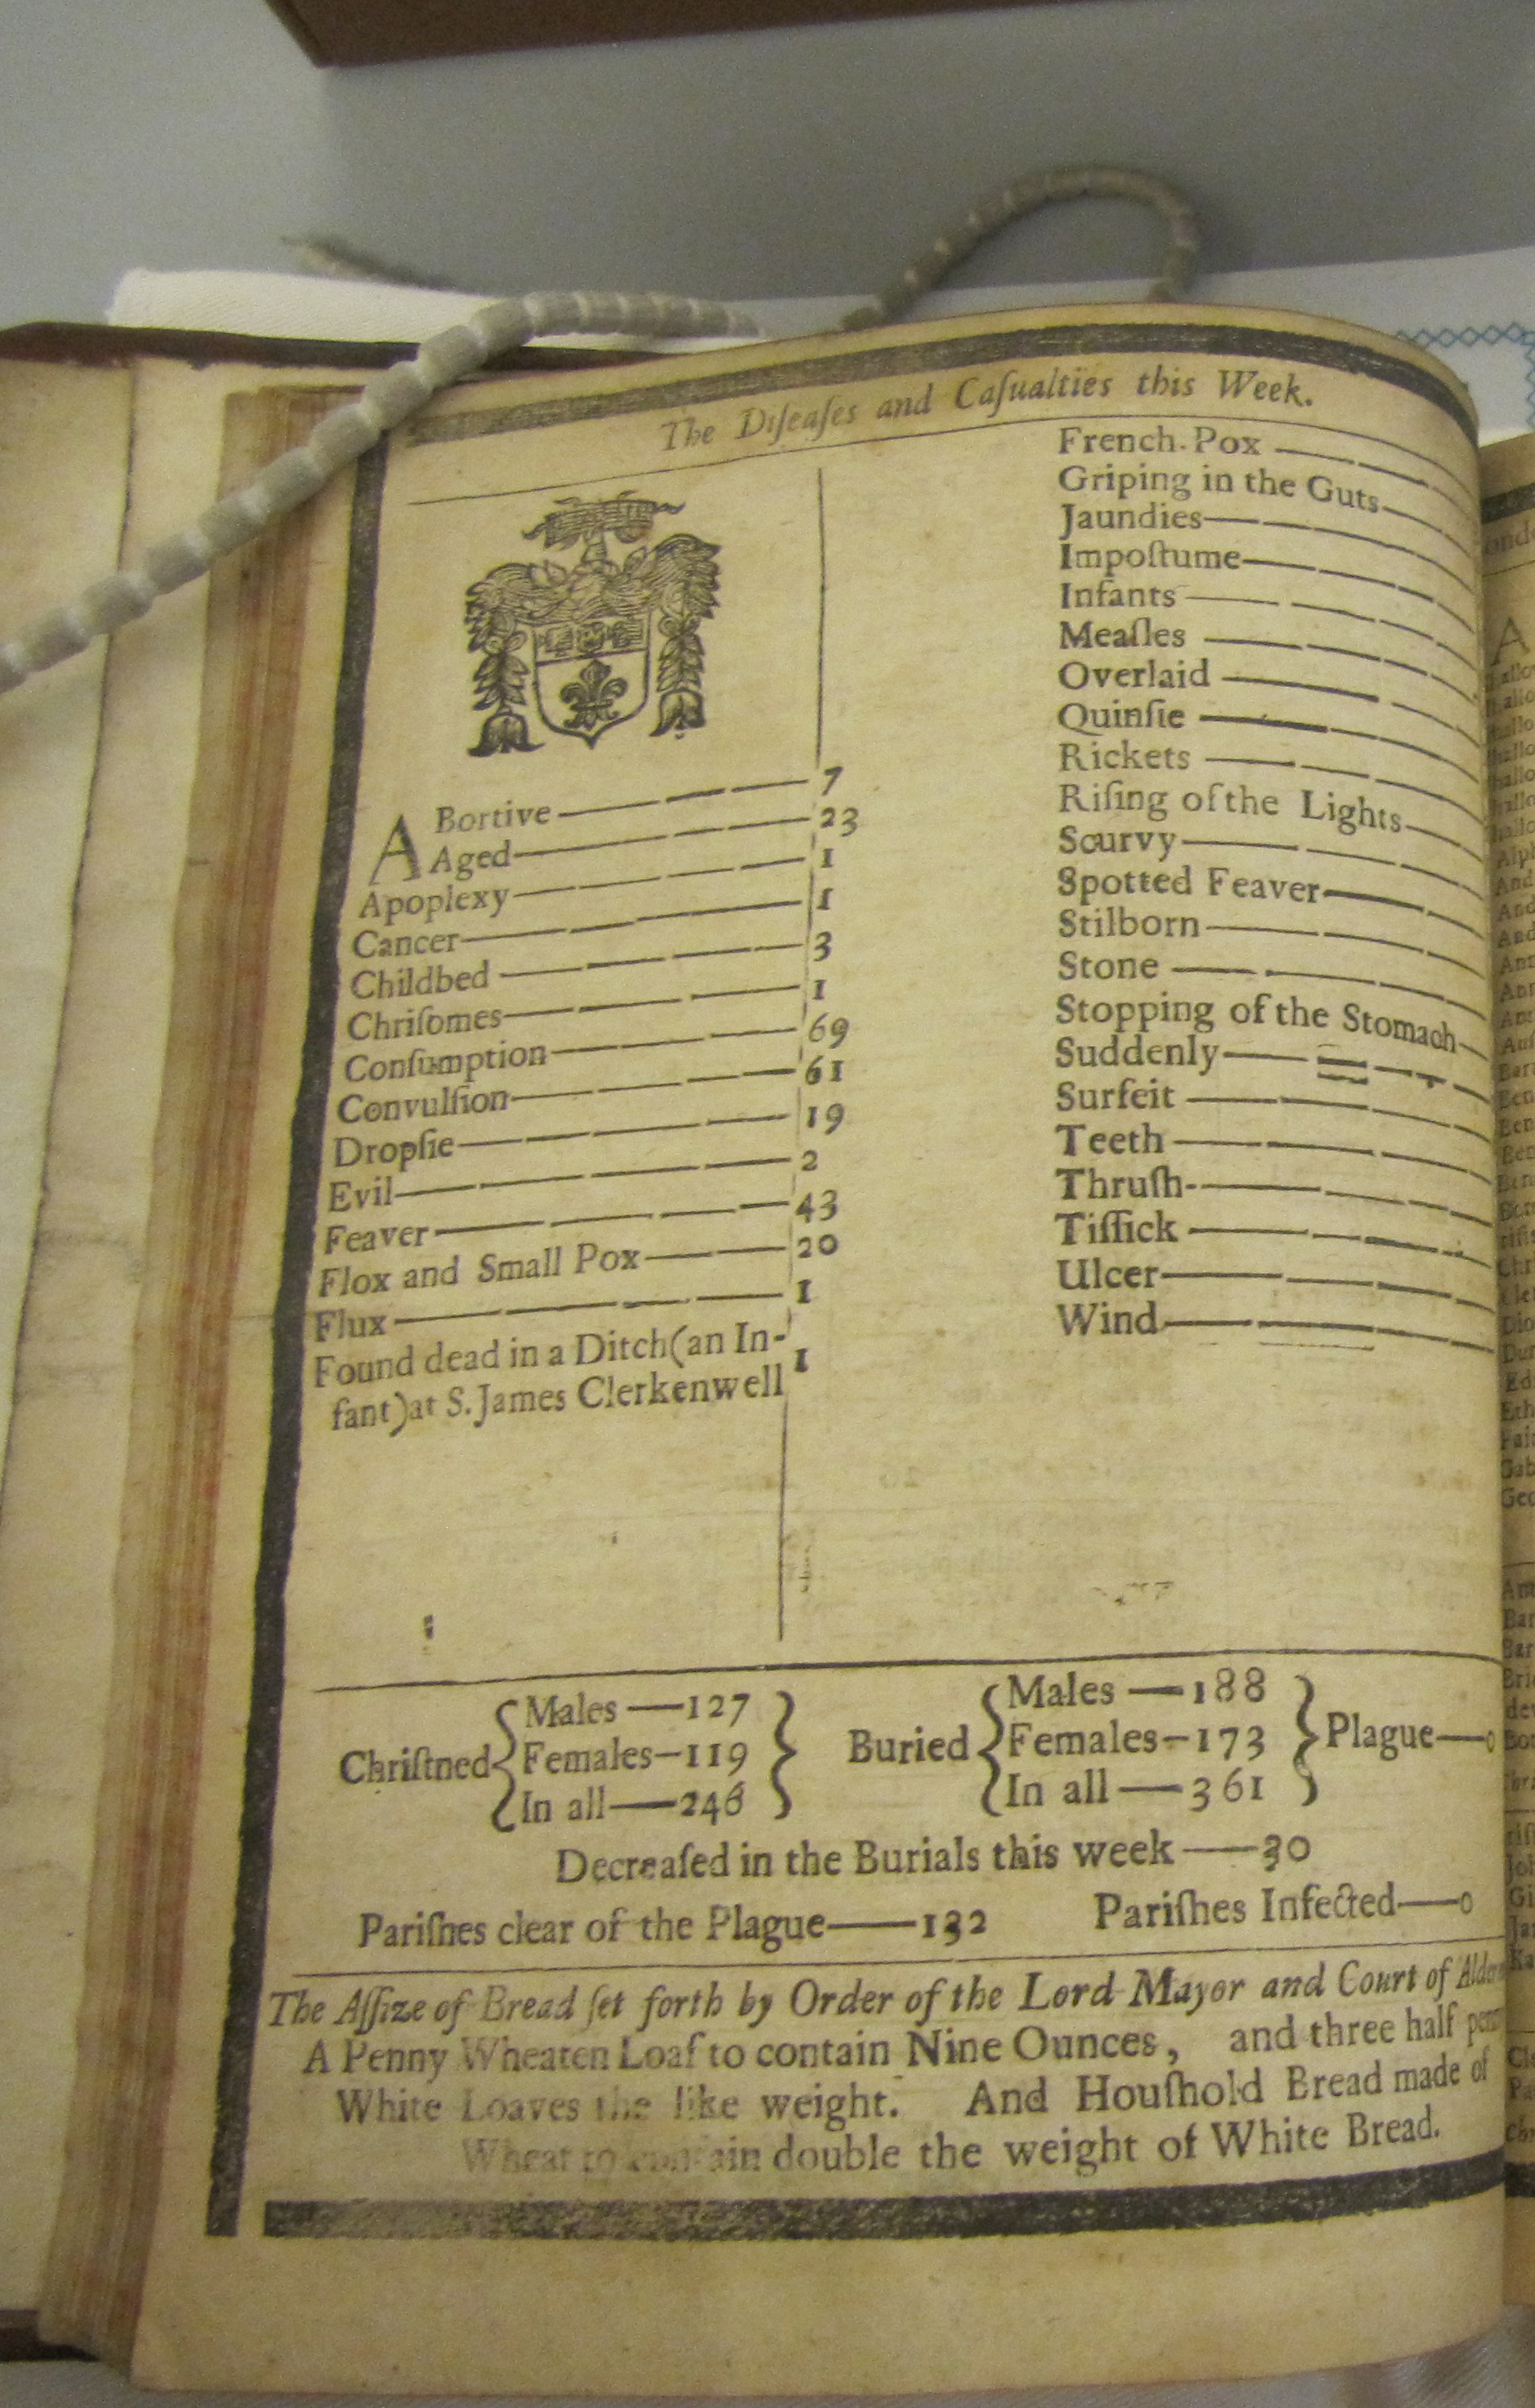 The Diſeaſes and Caſualties this Week.
ABortive 7
Aged 23
Apoplexy 1
Cancer 1
Childbed 3
Chriſomes 1
Conſumption 69
Convulſion 61
Dropſie 19
Evil 2
Feaver 43
Flox and Small Pox 20
Flux 1
Found dead in a Ditch (an In-
fant) at S. James Clerkenwell 1
French Pox
Griping in the Guts
Jaundies
Impoſtume
Infants
Meaſles
Overlaid
Quinſie
Rickets
Riſing of the Lights
Scurvy
Spotted Feaver
Stilborn
Stone
Stopping of the Stomach
Suddenly
Surfeit
Teeth
Thruſh
Tiſſick
Ulcer
Wind
Chriſtned
Males — 127
Females — 119
In all — 246
Buried
Males — 188
Females — 173
In all — 361
Plague — 0
Decreaſed in the Burials this week — 30
Pariſhes clear of the Plague — 132 Pariſhes Infected — 0
The Aſſize of Bread ſet forth by Order of the Lord Mayor and Court of
A Penny Wheaten Loaf to contain Nine Ounces, and three half
White Loaves the like weight. And Houſhold Bread made of
Wheat to contain double the weight of White Bread.